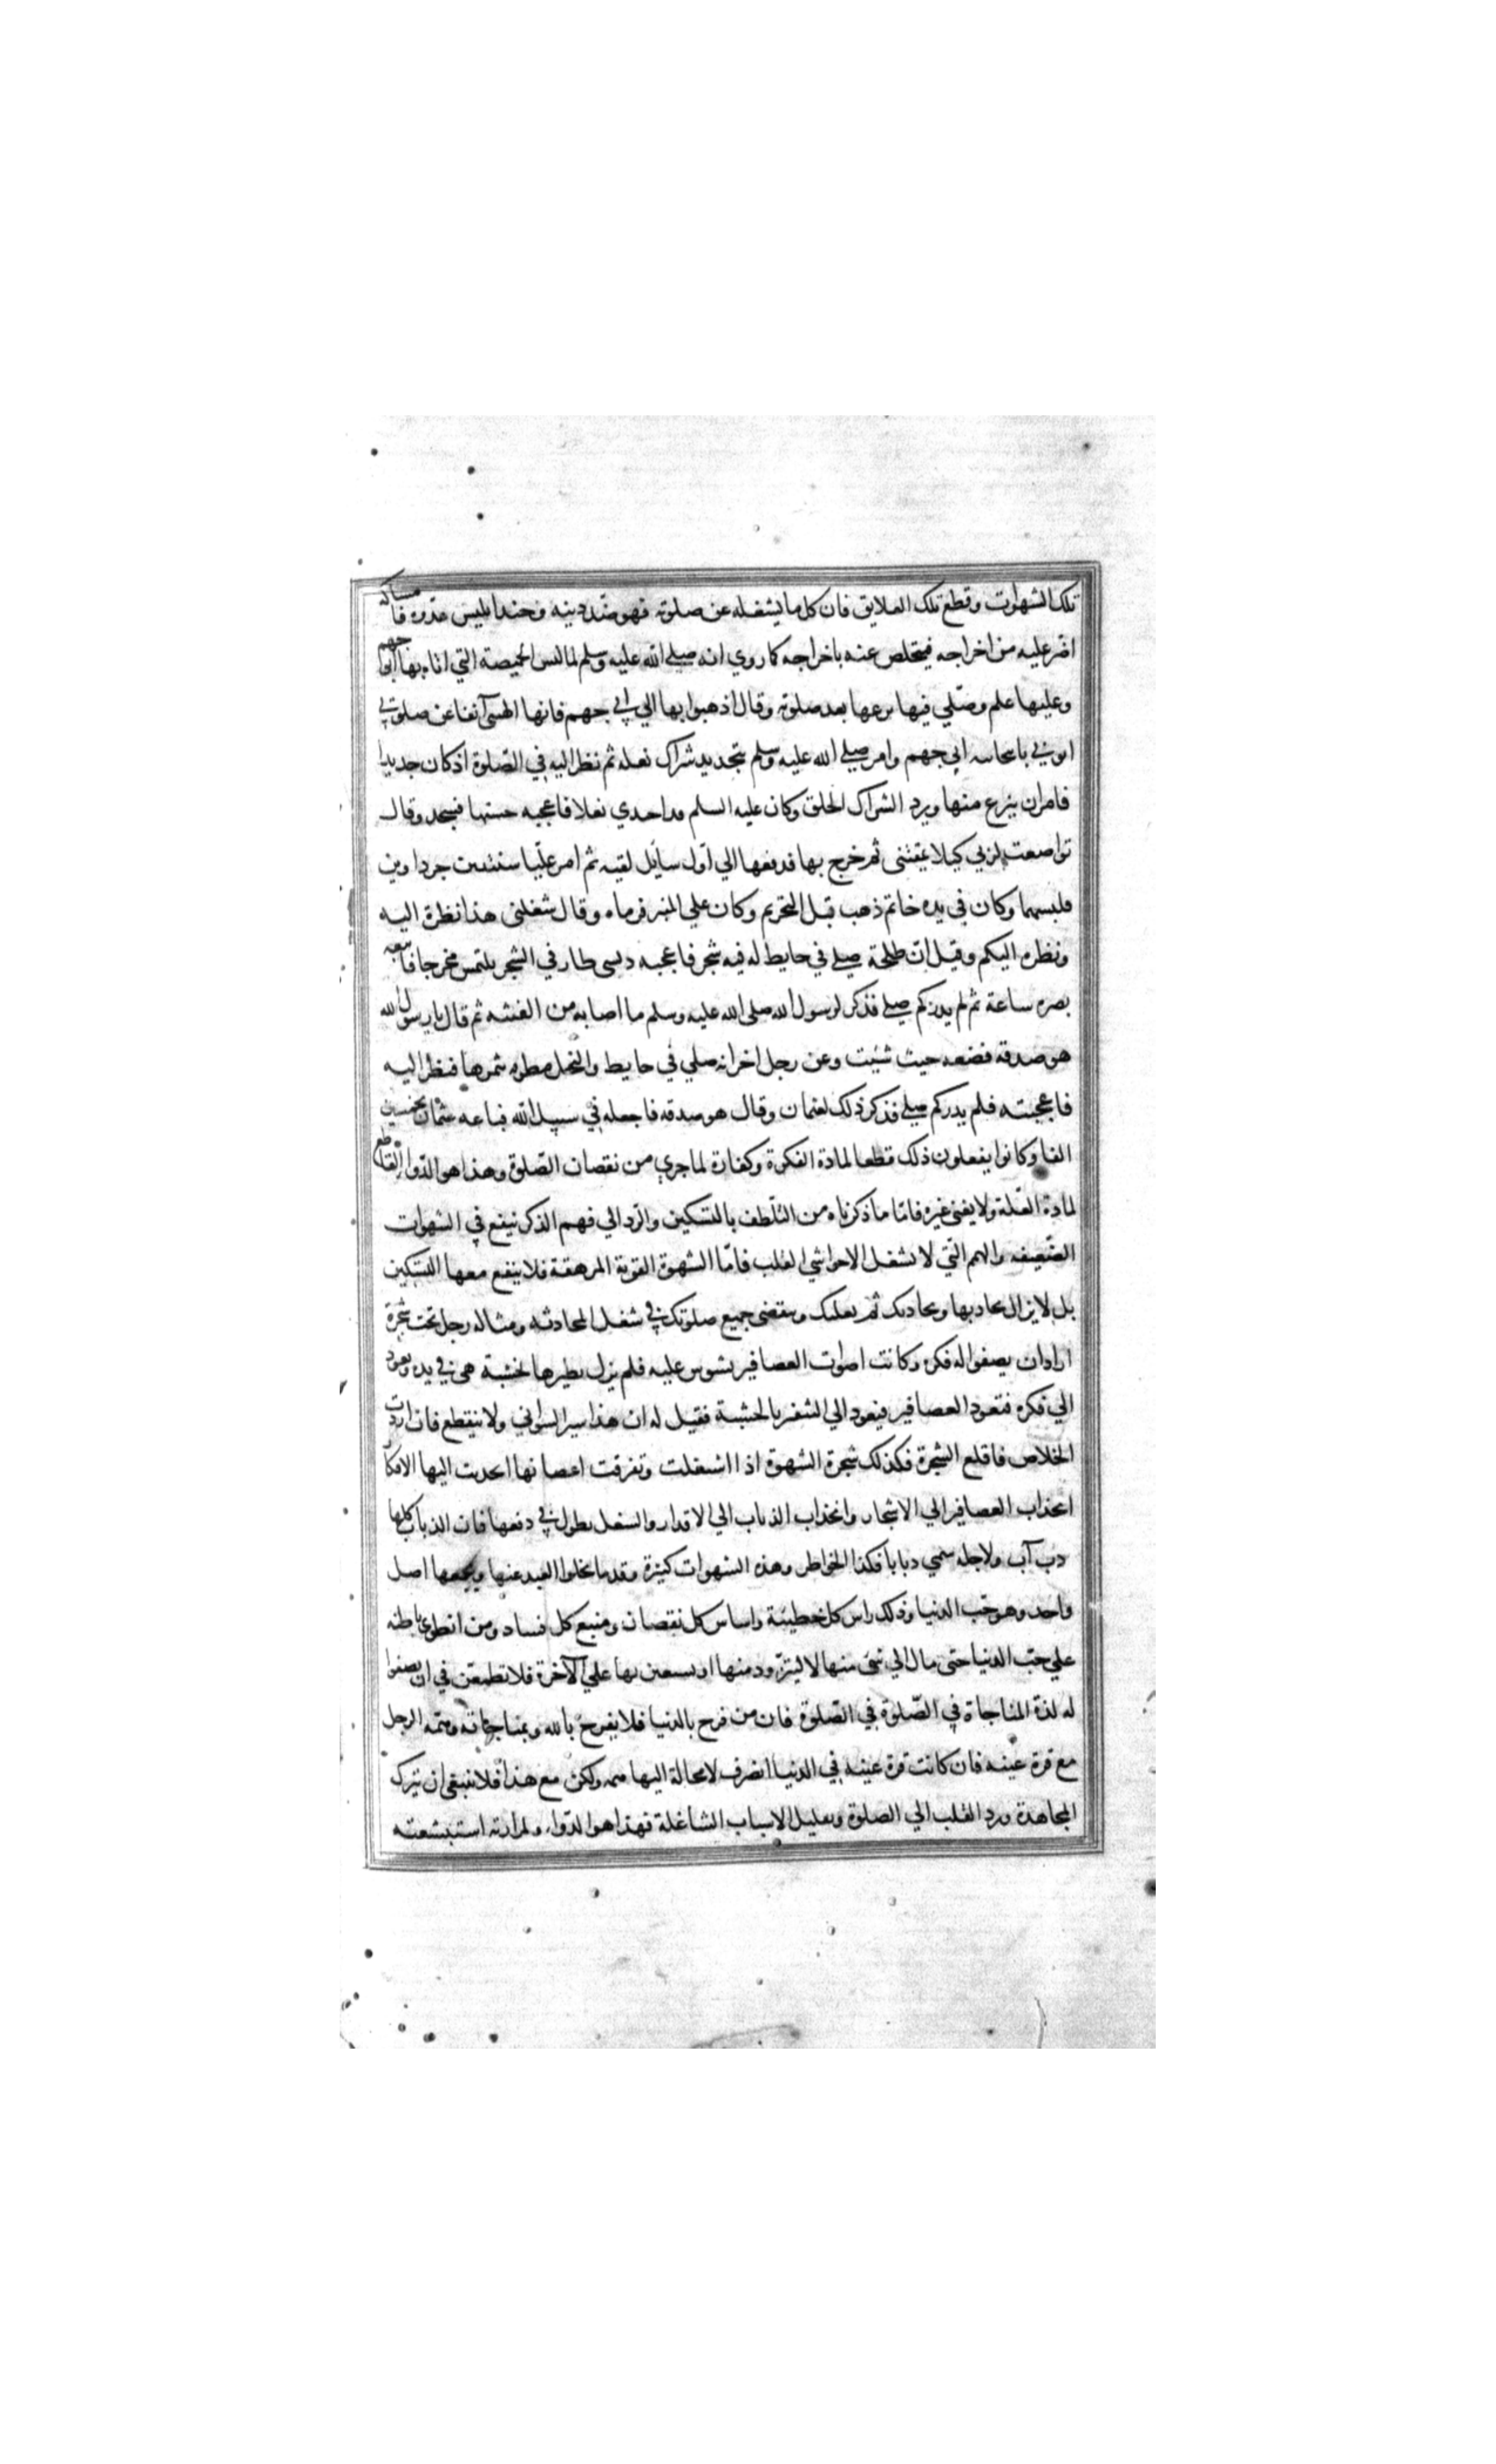 تلك الشهوات وقطع تلك العلايق فان كل ما يشغله عن صلوته فهو ضد دينه وجند ابليس عدوه فامساكه
اضر عليه من اخراجه فيتخلص عنه باخراجه كما روي انه صلى الله عليه وسلم لما لبس الخميصة التي اتاه بها ابو جهم
وعليها علم وصلي فيها نزعها بعد صلوته وقال اذهبوا بها الي ابي جهم فانها الهتني آنفا عن صلوتي
ايتوني بانبجانية ابي جهم وامر صلي الله عليه وسلم بتجديد شراك نعله ثم نظر اليه في الصلوة اذ كان جديدا
فامر ان ينزع منها ويرد الشراك الخلق وكان عليه السلم قد احتدي نعلا فاعجبه حسنها فسجد وقال
تواضعت لربي كيلا يمقتني ثم خرج بها فدفعها الي اول سايل لقيه ثم امر عليا سبتيتين جرداوين
فلبسهما وكان في يده خاتم ذهب قبل التحريم وكان علي المنبر فرماه وقال شغلني هذا نظرة اليه
ونظره اليكم وقيل ان طلحة صلي في حايط له فيه شجر فاعجبه دبسي طار في الشجر يلتمس مخرجا فاتبعه
بصره ساعة ثم لم يدر كم صلي فذكر لرسول الله صلى الله عليه وسلم ما اصابه من الفتنه ثم قال يا رسول الله
هو صدقه فضعه حيث شئت وعن رجل اخر انه صلي في حايط والنخل مطوقه بثمرها فنظر اليه
فاعجبته فلم يدر كم صلي فذكر ذلك لعثمان وقال هو صدقه فاجعله في سبيل الله فباعه عثمان بخمسين
الفا وكانوا يفعلون ذلك قطعا لمادة الفكرة وكفارة لما جري من نقصان الصلوة وهذا هو الدوا القاطع
لمادة العلة ولا يغني غيره فاما ما ذكرناه من التلطف بالتسكين والرد الي فهم الذكر ينفع في الشهوات
الضعيفه والهم التي لا تشغل الا حواشي القلب فاما الشهوة القوية المرهقة فلا ينفع معها التسكين
بل لا يزال تجاذبها وتجاذبك ثم تغلبك وينقضي جميع صلوتك في شغل المجاذبه ومثاله رجل تحت شجرة
اراد ان يصفوا له فكره وكانت اصوات العصافير تشوش عليه فلم يزل يطيرها بخشبة هي في يده ويعود
الي فكره فتعود العصافير فيعود الي التنفير بالخشبة فقيل له ان هذا سير السواني ولا ينقطع فان اردت
الخلاص فاقلع الشجرة فكذلك شجرة الشهوة اذا اشتعلت وتفرقت اغصانها انجذبت اليها الافكار
انجذاب العصافير الي الاشجار وانجذاب الذباب الي الاقذار والشغل يطول في دفعها فان الذباب كلما
ذب آب ولاجله سمي ذبابا فكذا الخواطر وهذه الشهوات كثيرة وقد ما يخلوا العبد عنها ويجمعها اصل
واحد وهو حب الدنيا وذلك راس كل خطيئة واساس كل نقصان ومنبع كل فساد ومن انطوي باطنه
علي حب الدنيا حتى مال الي شئ منها لا ليتزود منها او يستعين بها علي الآخرة فلا تطمعن في ان يصفوا
له لذة المناجاة في الصلوة في الصلوة فان من فرح بالدنيا فلا يفرح بالله وبمناجاته وهمه الرجل
مع قرة عينه فان كانت قرة عينه في الدنيا انصرف لا محالة اليها همه ولكن مع هذا فلا ينبغي ان يترك
المجاهدة ورد القلب الي الصلوة وتقليل الاسباب الشاغلة فهذا هو الدواء ولمرارته استبشعته